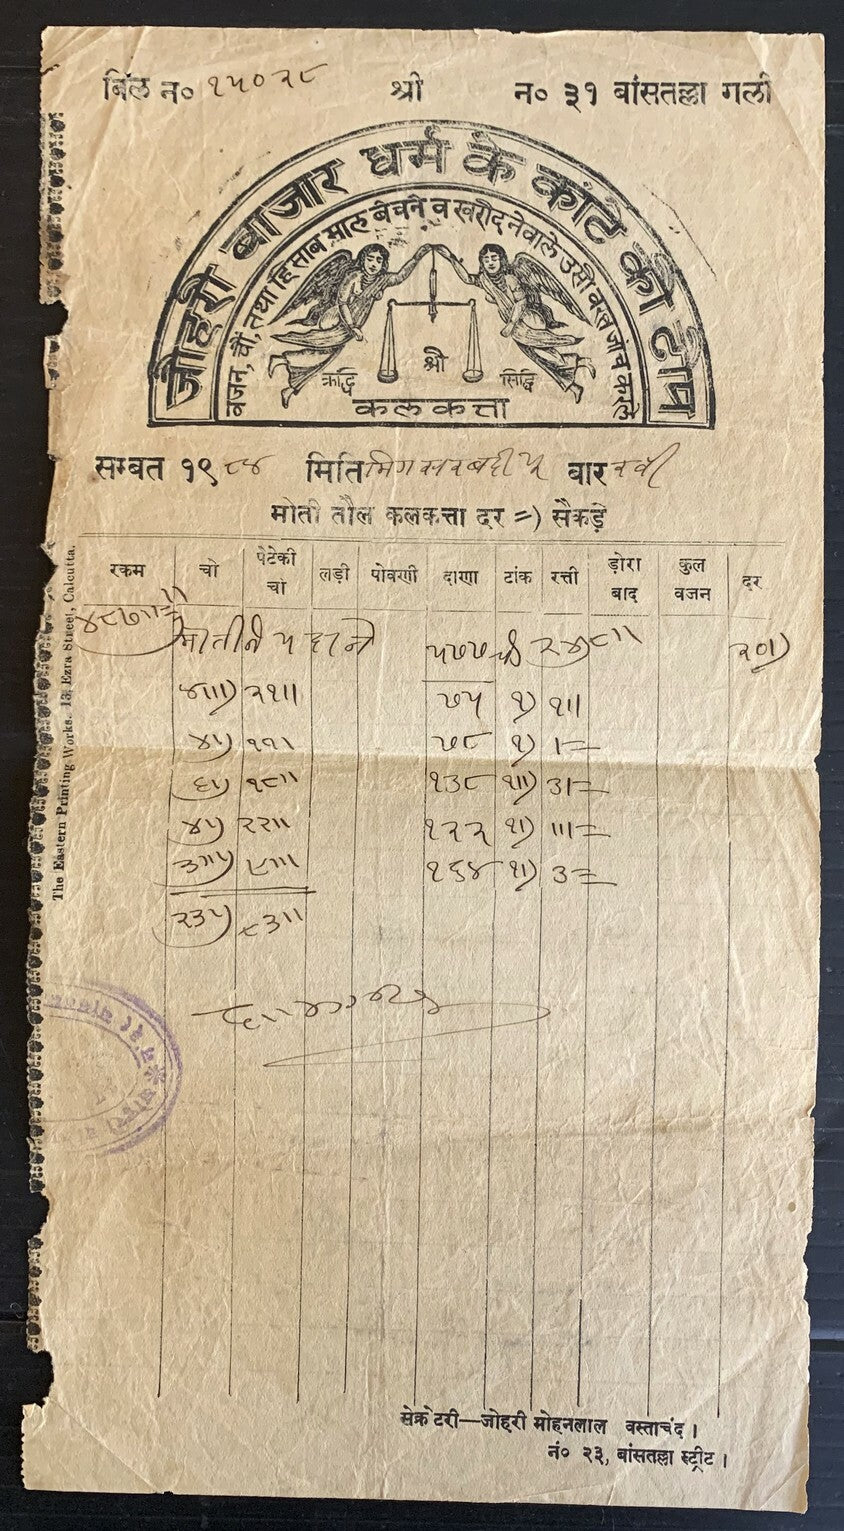 बिल न० १५०२८ श्री न० ३१ बांसतल्ला गली
जोहरी बाजार धर्म के कांटे की टीप
वजन, चौ, तथा हिसाब माल बेचने व खरीदनेवाले उसी वख्त जांच करलें
ऋद्धि श्री सिद्धि
कलकत्ता
सम्बत १९८४ मिति मिगसर बदी ५ बार रवी
मोती तौल कलकत्ता दर =) सैकड़े
रकम चो पेटेकी चो लड़ी पोवणी दाणा टांक रत्ती ड़ोरा बाद कुल वजन दर
मोतीनी ५७७ २०।)
४।।।) २१।। ७५ १) १।।
४५) ११। ७८ १) ।=
६५) १८।। १३८ १।।) ३।=
४५) २२।। १२२ १।) ।।।=
१६४ १।) ३=
२३५) ८३।।
The Eastern Printing Works. 13, Ezra Street, Calcutta.
सेक्रेटरी—जोहरी मोहनलाल वस्ताचंद।
नं० २३, बांसतल्ला स्ट्रीट।